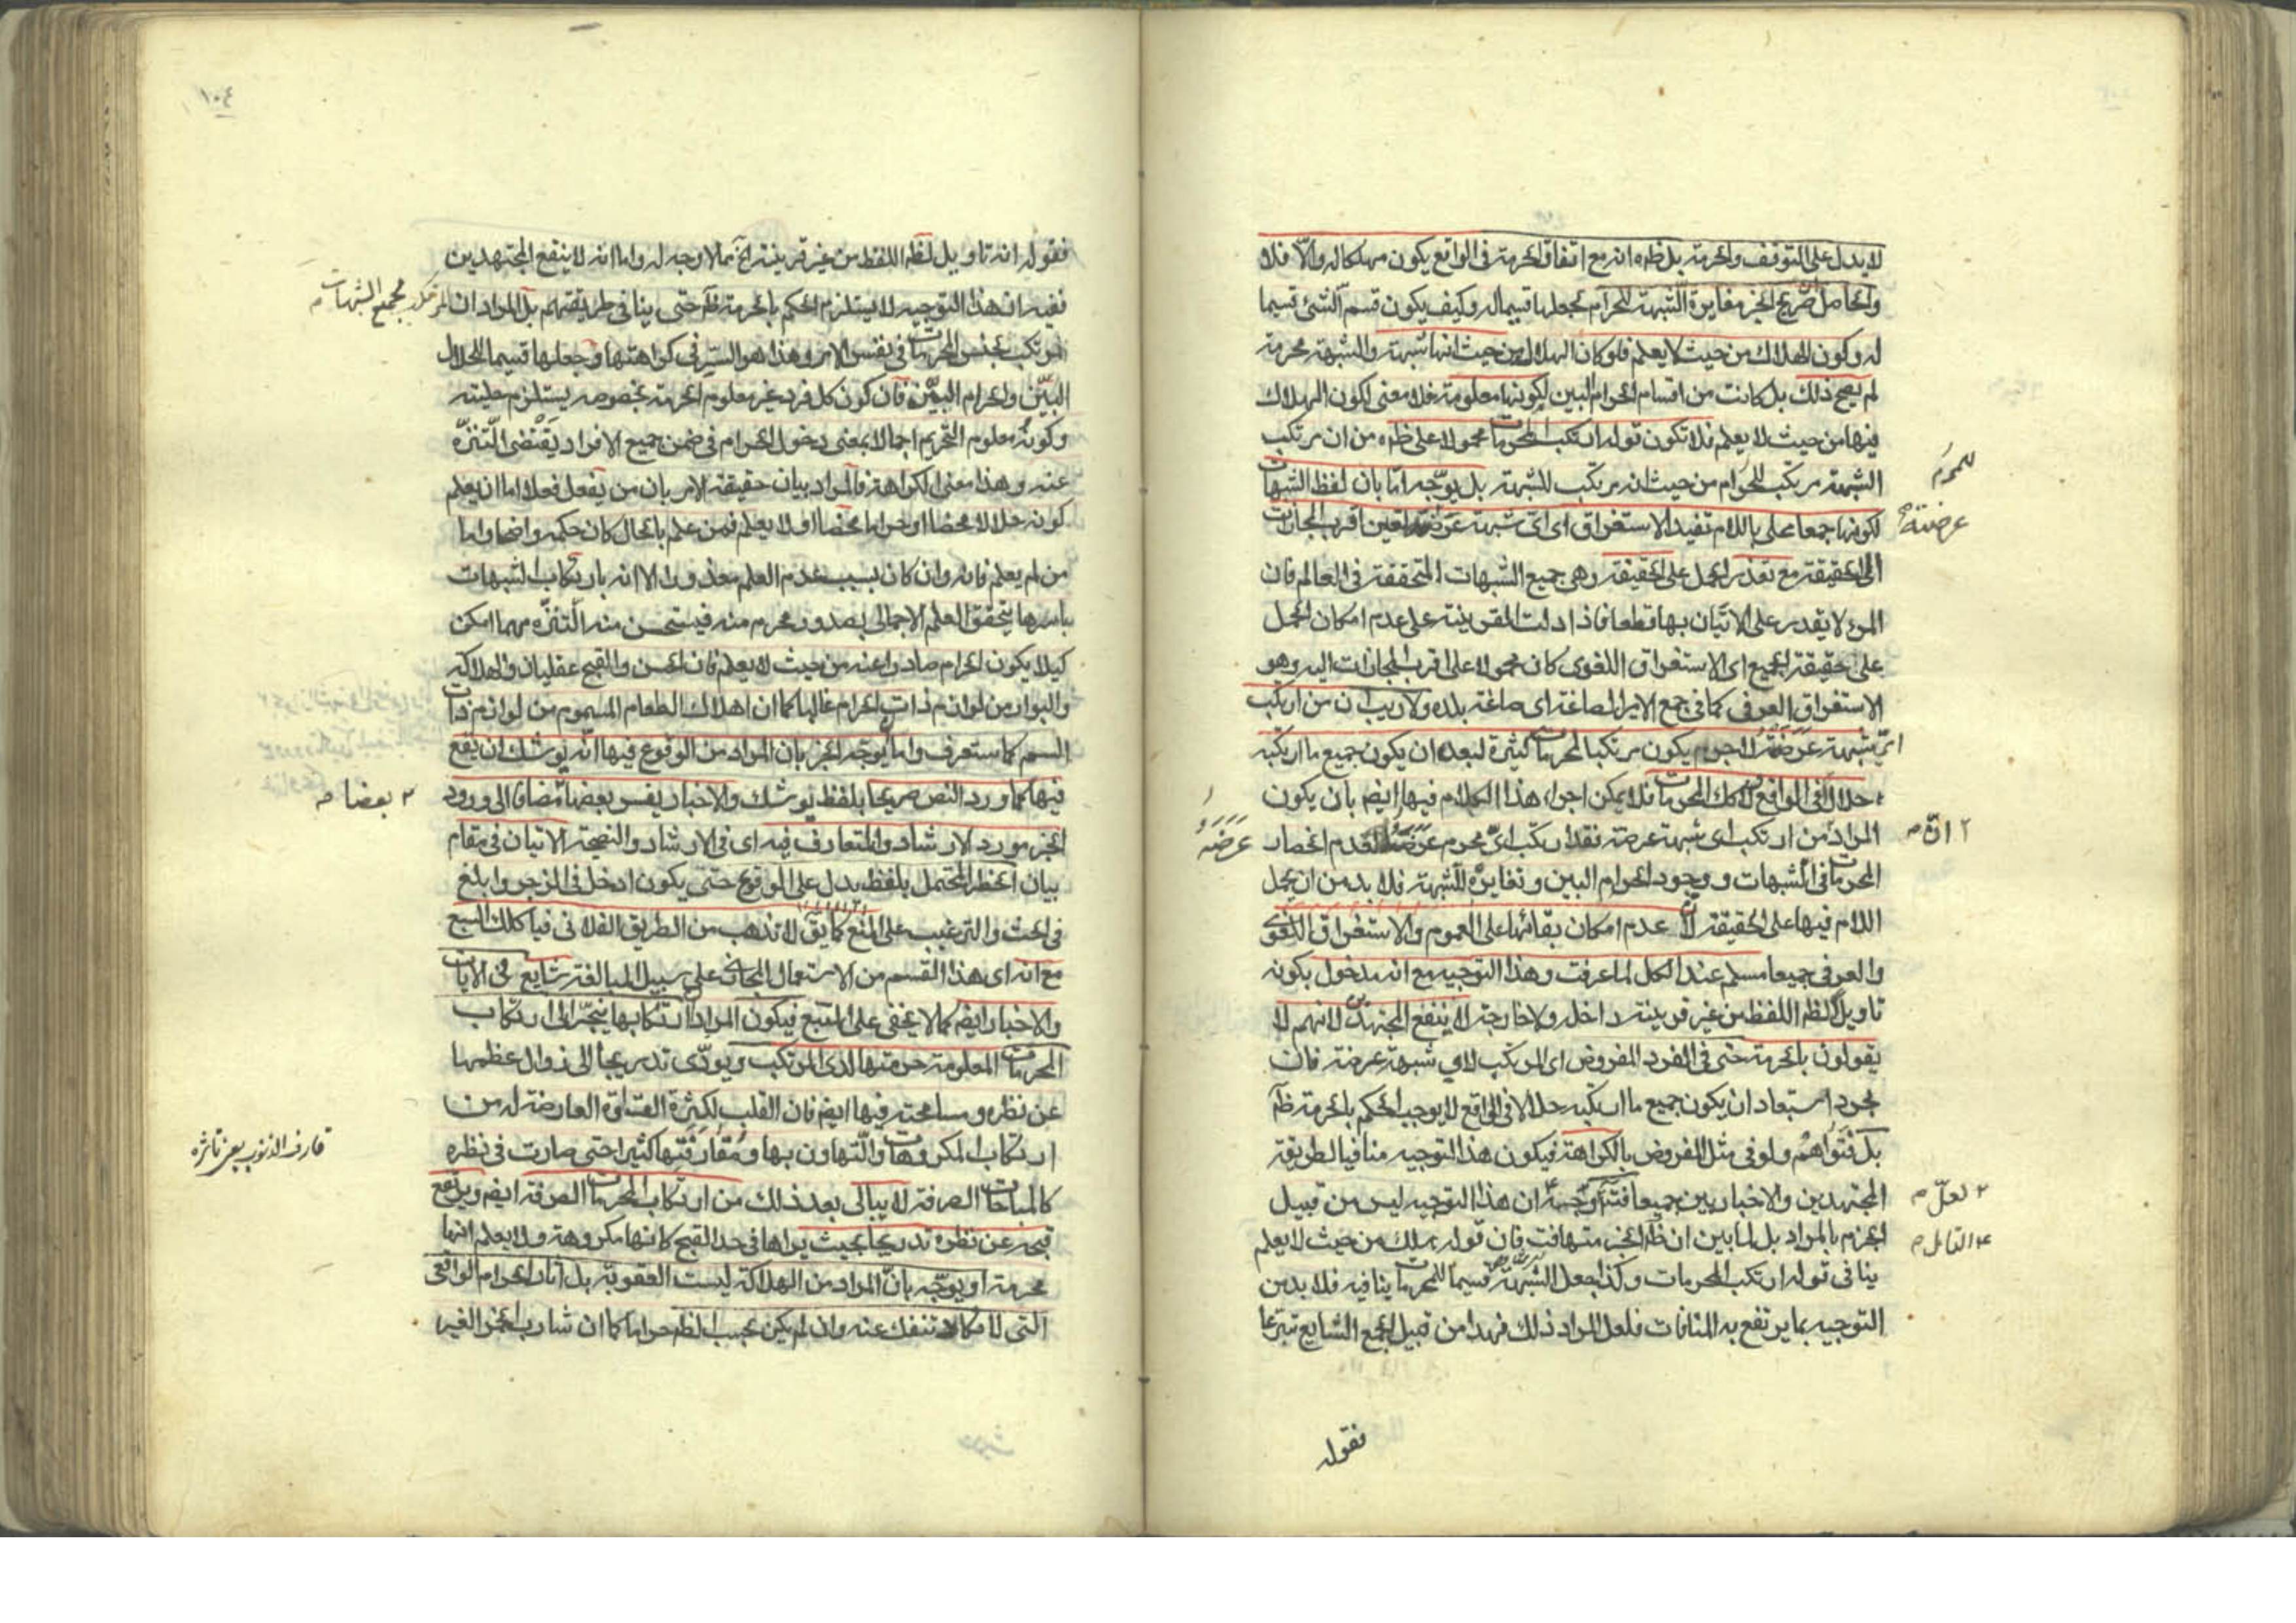 لا يدل على التوقف والحرمة بل ظه انه مع اتفاق الحرمة في الواقع يكون مهلكا له والّا فلا
والحاصل صريح الخبر مغايرة الشبهة للحرام لجعلها قسيما له وكيف يكون قسم الشئ قسيما
له وكون الهلاك من حيث لا يعلم فلو كان الهلاك من حيث انها شبهة والشبهة محرمة
لم يصح ذلك بل كانت من اقسام الحرام البين لكونها معلومة فلا معنى لكون الهلاك
فيها من حيث لا يعلم فلا تكون قوله ارتكب المحرمات محمولا على ظه من ان مرتكب
الشبهة مرتكب للحرام من حيث انه مرتكب للشبهة بل يوجّه امّا بان لفظ الشبهات
للمحرم
لكونها جمعا محلى باللام تفيد الاستغراق اى اىّ شبهة عرضته تعين اقرب المجازات
عرضته
الى الحقيقة مع تعذر الحمل على الحقيقة وهى جميع الشبهات المتحققة في العالم فان
المرء لا يقدر على الاتيان بها قطعا فاذا دلت القرينة على عدم امكان الحمل
على حقيقة الجميع اى الاستغراق اللغوى كان محمولا على اقرب المجازات اليه وهو
الاستغراق العرفى كما في جمع الامير الصاغة اى صاغة بلده ولا ريب ان من ارتكب
اىّ شبهة عرضته لا جرم يكون مرتكبا لمحرمات كثيرة لبعد ان يكون جميع ما ارتكبه
حلالا في الواقع لك المحرمات فلا يمكن اجراء هذا الكلام فيها ايضم بان يكون
المراد من ارتكب اى شبهة عرضته فقد ارتكب اىّ محرم عرضه لعدم انحصار
٢ انّ م
عَرَضَهُ
المحرمات في الشبهات و وجود الحرام البين وتغايره للشبهة فلا بد من ان يحمل
اللام فيها على الحقيقة لان عدم امكان بقائها على العموم والاستغراق اللغوى
والعرفى جميعا مسلم عند الكل لما عرفت وهذا التوجيه مع انه مدخول بكونه
تاويلا لظم اللفظ من غير قرينة داخلة ولا خارجة لا ينفع المجتهدين لانهم لا
يقولون بالحرمة حتى في الفرد المفروض اى المرتكب لاى شبهة عرضته فان
مجرد استبعاد ان يكون جميع ما ارتكبه حلالا في الواقع لا يوجب الحكم بالحرمة ظم
بل فتواهم ولو في مثل المفروض بالكراهة فيكون هذا التوجيه منافيا لطريقة
المجتهدين والاخباريين جميعا ان هذا التوجيه ليس من قبيل
٢ لعلّ م
الجزم بالمراد بل لما بين ان ظم الخبر متهافت فان قوله هلك من حيث لا يعلم
٤ القابل م
ينافى قوله ارتكب المحرمات وكذا جعل الشبهة قسيما للمحرمات ينافيه فلا بد من
التوجيه بما يرتفع به المنافات فلعل المراد ذلك فهذا من قبيل الجمع الشايع تبرعا
فقوله
١٠٤
فقوله انه تاويل لظم اللفظ من غير قرينة الخ مما لا وجه له واما انه لا ينفع المجتهدين
ففيه ان هذا التوجيه لا يستلزم الحكم بالحرمة ظم حتى ينافى طريقتهم بل المراد ان المرتكب
لجميع الشبهات م
مرتكب لجنس المحرمات في نفس الامر وهذا هو السّر في كراهتها وجعلها قسيما للحلال
البيّن والحرام البيّن فان كون كل فرد غير معلوم الحرمة بخصوصه يستلزم حليته
وكونه معلوم التحريم اجمالا بمعنى دخول الحرام في ضمن جميع الافراد يقتضى التنزّه
عنه وهذا معنى الكراهة فالمراد بيان حقيقة الامر بان من يفعل فعلا اما ان يعلم
كونه حلالا محضا او حراما محضا او لا يعلم فمن علم بالحال كان حكمه واضحا واما
من لم يعلم فانه وان كان بسبب عدم العلم معذورا الا انه بارتكاب الشبهات
باسرها يتحقق العلم الاجمالى بصدور محرم منه فيستحسن منه التنزّه مهما امكن
كيلا يكون الحرام صادرا عنه من حيث لا يعلم فان الحسن والقبح عقليان والهلاكة
والبوار من لوازم ذات الحرام غالبا كما ان اهلاك الطعام المسموم من لوازم ذات
السم كما ستعرف واما يوجّه الخبر بان المراد من الوقوع فيها انّه يوشك ان يقع
فيها كما ورد النص صريحا بلفظ يوشك والاخبار يفسر بعضها مضافا الى ورود
٢ بعضا م
الخبر مورد الارشاد والمتعارف فيه اى في الارشاد والنصيحة الاتيان في مقام
بيان الخطر المحتمل بلفظ يدل على الوقوع حتى يكون ادخل في الزجر وابلغ
في الحث والترغيب على المنع كما يق لا تذهب من الطريق الفلانى فيأكلك السبع
مع انه اى هذا القسم من الاستعمال المجازى على سبيل المبالغة شايع في الايات
والاخبار ايضم كما لا يخفى على المتتبع فيكون المراد ارتكابها ينجّر الى ارتكاب
المحرمات المعلومة حرمتها لدى المرتكب ويودّى تدريجا الى زوال عظمها
عن نظره ومسامحته فيها ايضم فان القلب لكثرة القساوة العارضة له من
ارتكاب المكروهات والتهاون بها ومقارفتها كثيرا حتى صارت في نظره
قارف الذنوب
كالمباحات الصرفة لا يبالى بعد ذلك من ارتكاب المحرمات الصرفة ايضم ويرتفع
قبحه عن نظره تدريجا بحيث يراها في حد القبح كانها مكروهة ولا يعلم انها
محرمة او يوجّه بانّ المراد من الهلاكة ليست العقوبة بل آثار الحرام الواقعى
التى لا تنفك عنه وان لم يكن بحسب الظم حراما كما ان شارب الخمر الغير